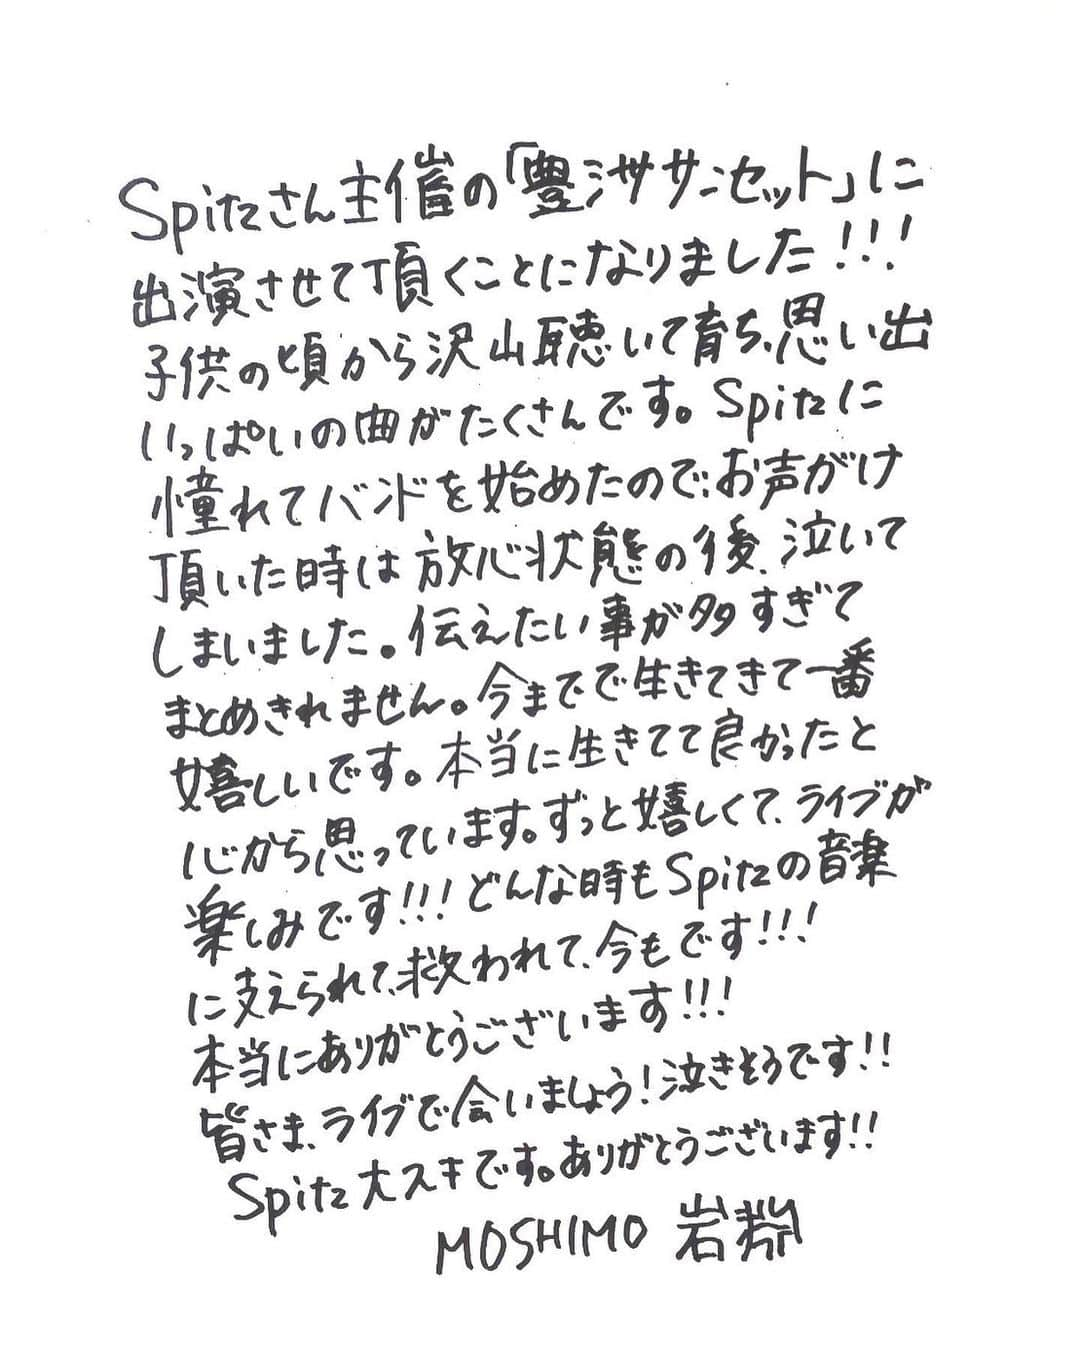 Spitzさん主催の「豊洲サンセット」に
出演させて頂くことになりました!!!
子供の頃から沢山聴いて育ち、思い出
いっぱいの曲がたくさんです。Spitzに
憧れてバンドを始めたので、お声がけ
頂いた時は放心状態の後、泣いて
しまいました。伝えたい事が多すぎて
まとめきれません。今までで生きてきて一番
嬉しいです。本当に生きてて良かったと
心から思っています。ずっと嬉しくて、ライブが
楽しみです!!!どんな時もSpitzの音楽
に支えられて、救われて、今もです!!!
本当にありがとうございます!!!
皆さま、ライブで会いましょう!泣きそうです!!
Spitz大スキです。ありがとうございます!!
MOSHIMO 岩淵